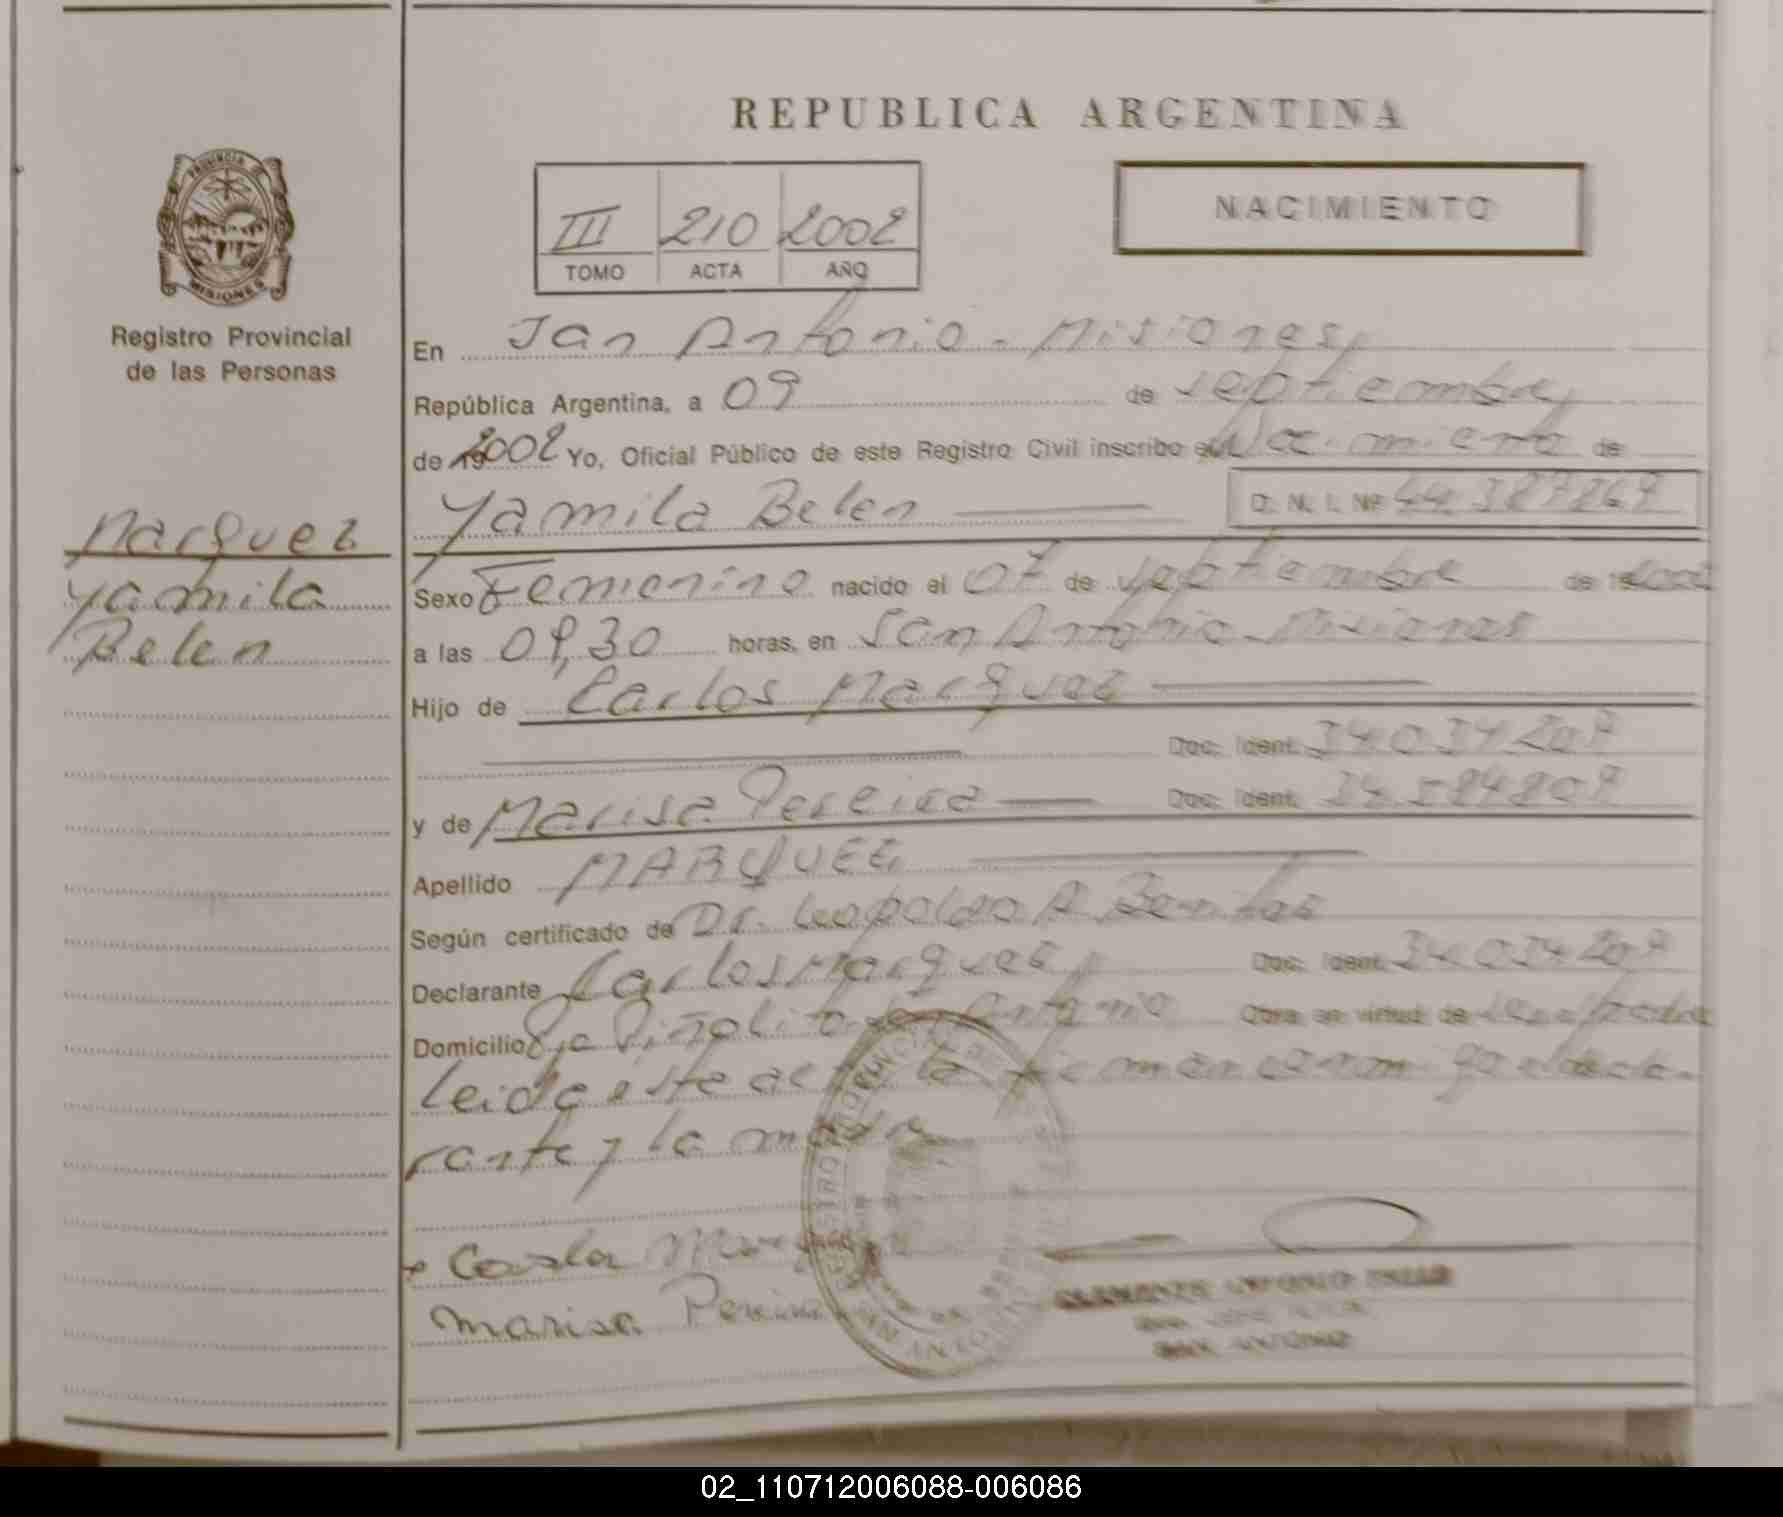 REPUBLICA ARGENTINA
PROVINCIA DE
MISIONES
Registro Provincial
de las Personas
III 210 2002
TOMO ACTA AÑO
NACIMIENTO
En San Antonio - Misiones,
República Argentina, a 09 de septiembre,
de 19 2002 Yo, Oficial Público de este Registro Civil inscribo el Nacimiento de
Yamila Belen D. N. I. Nº 44.387867
Marquez
Yamila
Belen
Sexo Femenino nacido el 07 de septiembre de 2002
a las 09,30 horas, en San Antonio - Misiones
Hijo de Carlos Marquez
Doc. Ident. 34.034.207
y de Marisa Pereira Doc. Ident. 34.584.807
Apellido MARQUEZ
Según certificado de Dr. Leopoldo A. Benitez
Declarante Carlos Marquez, Doc. Ident. 34.034.207
Domicilio Antonio Obra en virtud de
Leida este acta la firman el decla-
rante y la madre
Marisa Pereira
SAN ANTONIO
SAN ANTONIO
02_110712006088-006086